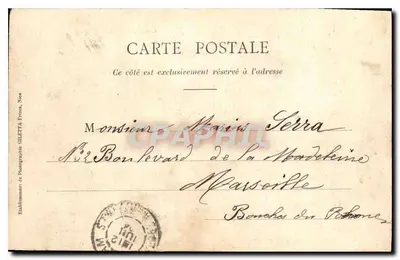 CARTE POSTALE
Ce côté est exclusivement réservé à l'adresse
Monsieur Marius Serra
No 32 Boulevard de la Madeleine
Marseille
Bouches du Rhone
Etablissement de Photographie GILETTA Frères, Nice
CPAPHIL